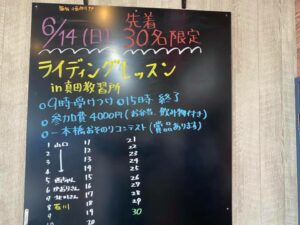 6/14(日) 先着30名限定
ライディングレッスン
in 真田教習所
○9時受けつけ ○15時 終了
○参加費4000円(お弁当、飲み物付き)
○一本橋おそのりコンテスト(賞品あります)
1 山口
2
3
4
5
6
7
8 石川
9
10
11
12
13
14
15
16
17
18
19
20
21
22
23
24
25
26
27
28
29
30